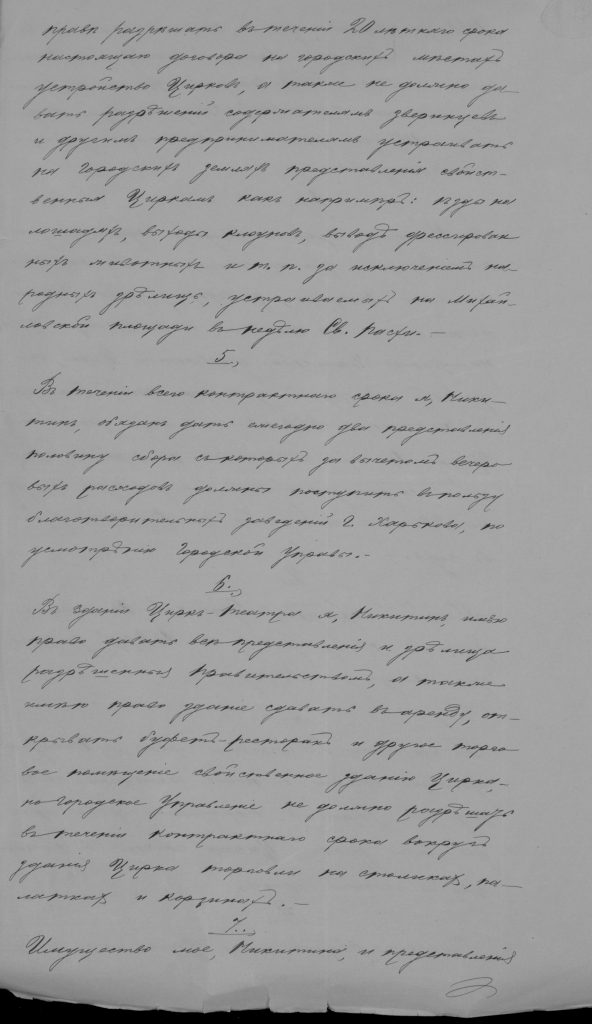 права разрѣшать въ теченіи 20 лѣтняго срока
настоящаго договора на городскихъ мѣстахъ
устройство Цирковъ, а также не должно да-
вать разрѣшеній содержателямъ звѣринцевъ
и другимъ предпринимателямъ устраивать
на городскихъ земляхъ представленія свойст-
венныя Циркамъ какъ напримѣръ: ѣзды на
лошадяхъ, выходы клоуновъ, выводъ дрессирован
ныхъ животныхъ и т. п. за исключеніемъ на-
родныхъ зрѣлищъ, устраиваемыхъ на Михай-
ловской площади въ недѣлю Св. Пасхи. —
5.,
Въ теченіи всего контрактнаго срока я, Ники-
тинъ, обязанъ дать ежегодно два представленія
половину сбора съ которыхъ за вычетомъ вечеро
выхъ расходовъ должны поступить въ пользу
благотворительныхъ заведеній Г. Харькова, по
усмотрѣнію Городской Управы. —
6.,
Въ зданіи Циркъ-Театра я, Никитинъ, имѣю
право давать всѣ представленія и зрѣлища
разрѣшенныя Правительствомъ, а также
имѣю право зданіе сдавать въ аренду, от-
крывать буфетъ-ресторанъ и другое торго
вое помѣщеніе свойственное зданію Цирка,-
но Городское Управленіе не должно разрѣшать
въ теченіи контрактнаго срока вокругъ
зданія Цирка торговли на столикахъ, па-
латкахъ и корзинахъ. —
7.,
Имущество мое, Никитина, и представленія